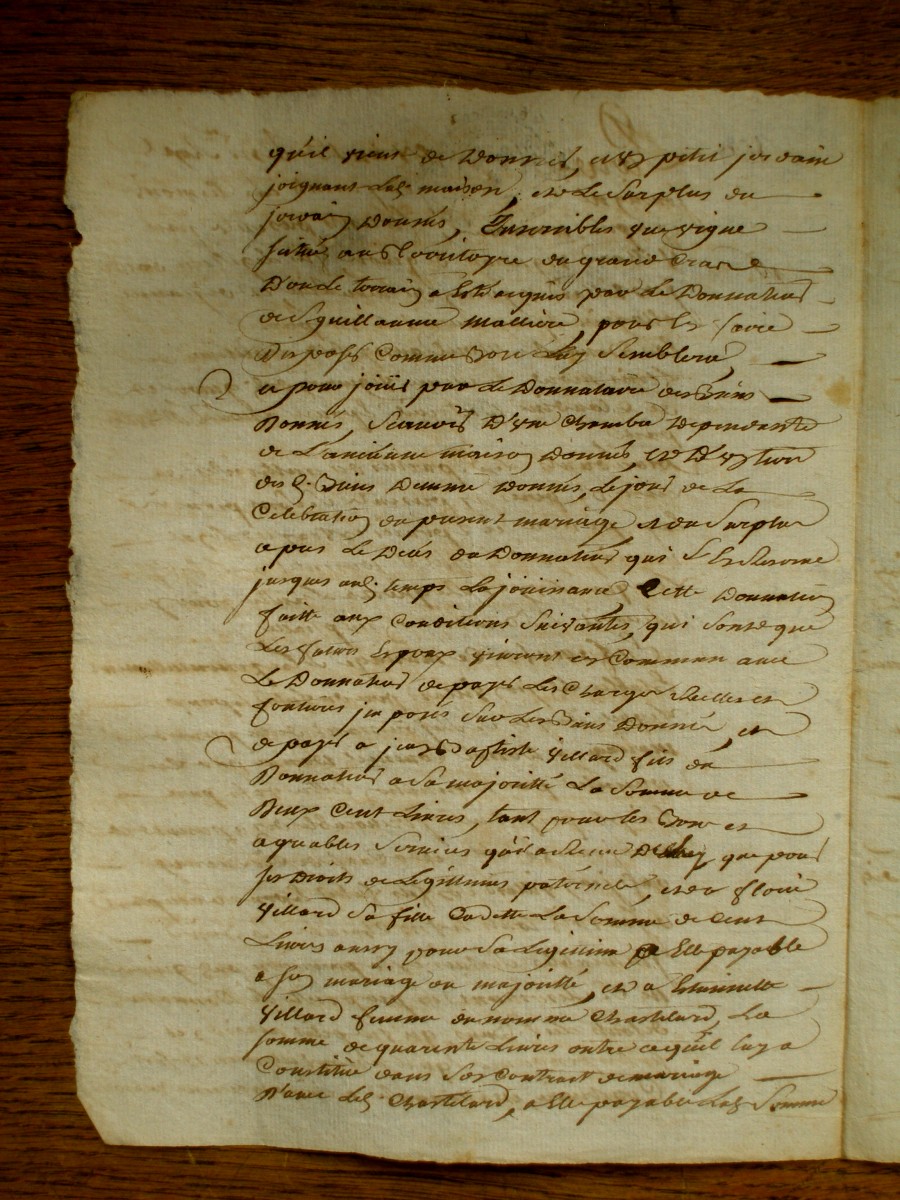 qu'il vient de donner, et un petit jardain
joignant lad. maison, et le surplus du
jardain donnés, Ensembles une vigne
située au territoyre du grand
dont le terrain a esté acquis par le Donnateur
de Sr guillaume malliere, pour les faire
disposer comme bon luy semblera,
et pour jouir par le Donnataire des biens
donnés, scavoir d'une chambre dependante
de l'anciènne maison donnée, et d'un tier
des d. biens donnés, le jour de la
Célébration du present mariage et du surplus
apres le décés du Donnateur qui s'en reserve
jusques aud. temps la jouissance, cette Donnation
faitte aux conditions suivantes, qui sont que
les futurs Espoux vivront en commun avec
le Donnateur de payer les charges réelles et
fonciéres imposés sur les biens donnés, et
de payer a jean Baptiste villard fils du
Donnateur a sa majorité la somme de
deux cent livres, tant pour les bons et
agreables services qu'il a receu de luy que pour
ses droits de légittimes paternels, et a
villard sa fille cadette la somme de cent
livres aussy pour sa légittime a elle payable
a son mariage ou majorité, et a Estiennette
villard femme du nommé Chastelard, la
somme de quarente livres outre ce qu'il luy a
Constitué dans son contract de mariage
d'avec led. Chastelard, a elle payable lad. somme